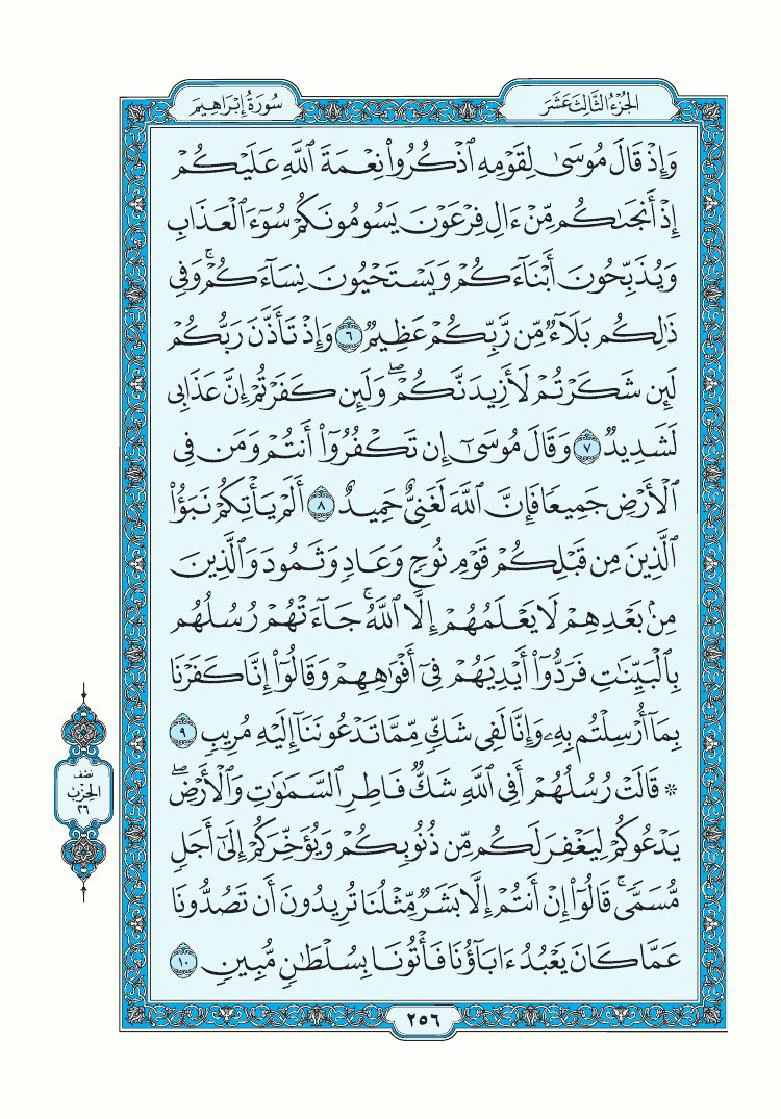 الجُزْءُ الثَّالِثَ عَشَرَ
سُورَةُ إِبْرَاهِيمَ
وَإِذْ قَالَ مُوسَىٰ لِقَوْمِهِ ٱذْكُرُوا۟ نِعْمَةَ ٱللَّهِ عَلَيْكُمْ
إِذْ أَنجَىٰكُم مِّنْ ءَالِ فِرْعَوْنَ يَسُومُونَكُمْ سُوٓءَ ٱلْعَذَابِ
وَيُذَبِّحُونَ أَبْنَآءَكُمْ وَيَسْتَحْيُونَ نِسَآءَكُمْ ۚ وَفِى
ذَٰلِكُم بَلَآءٌ مِّن رَّبِّكُمْ عَظِيمٌ ٦ وَإِذْ تَأَذَّنَ رَبُّكُمْ
لَئِن شَكَرْتُمْ لَأَزِيدَنَّكُمْ ۖ وَلَئِن كَفَرْتُمْ إِنَّ عَذَابِى
لَشَدِيدٌ ٧ وَقَالَ مُوسَىٰٓ إِن تَكْفُرُوٓا۟ أَنتُمْ وَمَن فِى
ٱلْأَرْضِ جَمِيعًا فَإِنَّ ٱللَّهَ لَغَنِىٌّ حَمِيدٌ ٨ أَلَمْ يَأْتِكُمْ نَبَؤُا۟
ٱلَّذِينَ مِن قَبْلِكُمْ قَوْمِ نُوحٍ وَعَادٍ وَثَمُودَ وَٱلَّذِينَ
مِنۢ بَعْدِهِمْ لَا يَعْلَمُهُمْ إِلَّا ٱللَّهُ ۚ جَآءَتْهُمْ رُسُلُهُم
بِٱلْبَيِّنَٰتِ فَرَدُّوٓا۟ أَيْدِيَهُمْ فِىٓ أَفْوَٰهِهِمْ وَقَالُوٓا۟ إِنَّا كَفَرْنَا
بِمَآ أُرْسِلْتُم بِهِۦ وَإِنَّا لَفِى شَكٍّ مِّمَّا تَدْعُونَنَآ إِلَيْهِ مُرِيبٍ ٩
۞ قَالَتْ رُسُلُهُمْ أَفِى ٱللَّهِ شَكٌّ فَاطِرِ ٱلسَّمَٰوَٰتِ وَٱلْأَرْضِ ۖ
يَدْعُوكُمْ لِيَغْفِرَ لَكُم مِّن ذُنُوبِكُمْ وَيُؤَخِّرَكُمْ إِلَىٰٓ أَجَلٍ
مُّسَمًّى ۚ قَالُوٓا۟ إِنْ أَنتُمْ إِلَّا بَشَرٌ مِّثْلُنَا تُرِيدُونَ أَن تَصُدُّونَا
عَمَّا كَانَ يَعْبُدُ ءَابَآؤُنَا فَأْتُونَا بِسُلْطَٰنٍ مُّبِينٍ ١٠
نصف
الحِزْب
٢٦
٢٥٦